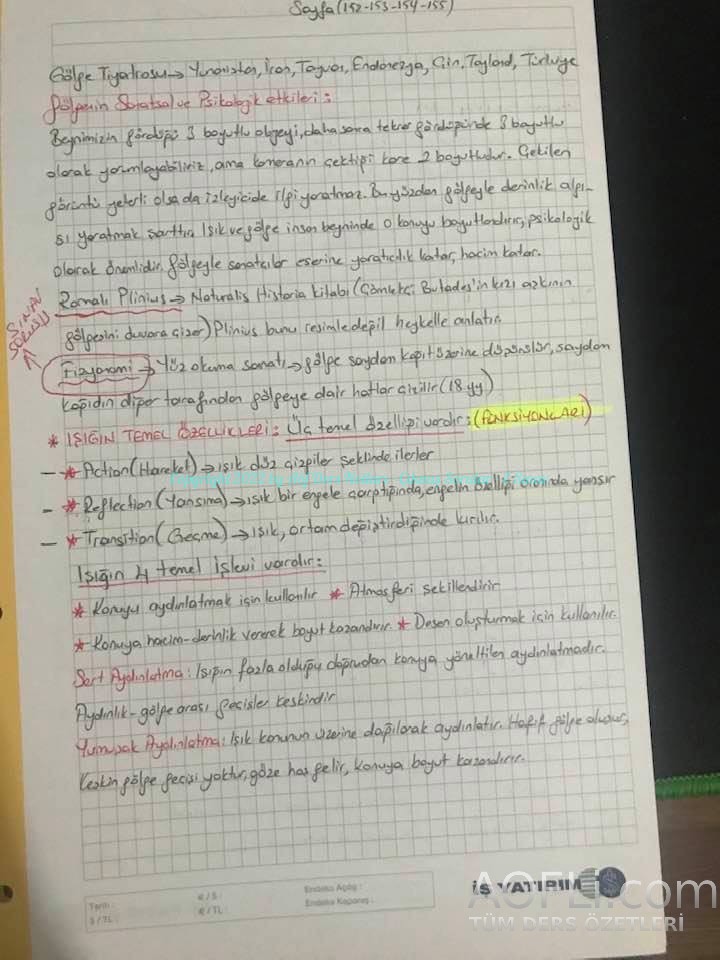 Sayfa (152-153-154-155)
Gölge Tiyatrosu → Yunanistan, İran, Tayvan, Endonezya, Çin, Tayland, Türkiye
Gölgenin Sanatsal ve Psikolojik etkileri :
Beynimizin gördüğü 3 boyutlu objeyi, daha sonra tekrar gördüğünde 3 boyutlu
olarak yorumlayabiliriz, ama kameranın çektiği kare 2 boyutludur. Çekilen
görüntü yeterli olsa da izleyicide ilgi yaratmaz. Bu yüzden gölgeyle derinlik algı-
sı yaratmak şarttır. Işık ve gölge insan beyninde o konuyu boyutlandırır, psikolojik
olarak önemlidir. Gölgeyle sanatçılar eserine yaratıcılık katar, hacim katar.
Romalı Plinius → Naturalis Historia kitabı (Çömlekçi Butades'in kızı aşkının
SINAV SORUSU
gölgesini duvara çizer) Plinius bunu resimle değil heykelle anlatır.
Fizyonomi → Yüz okuma sanatı → gölge saydam kağıt üzerine düşürülür, saydam
kağıdın diğer tarafından gölgeye dair hatlar çizilir (18.yy)
* IŞIĞIN TEMEL ÖZELLİKLERİ : Üç temel özelliği vardır : (FONKSİYONLARI)
- * Action (Hareket) → ışık düz çizgiler şeklinde ilerler
- * Reflection (Yansıma) → ışık bir engele çarptığında, engelin özelliği oranında yansır
- * Transition (Geçme) → ışık, ortam değiştirdiğinde kırılır.
Işığın 4 temel işlevi vardır :
* Konuyu aydınlatmak için kullanılır * Atmosferi şekillendirir
* Konuya hacim-derinlik vererek boyut kazandırır * Desen oluşturmak için kullanılır.
Sert Aydınlatma : Işığın fazla olduğu doğrudan konuya yöneltilen aydınlatmadır.
Aydınlık-gölge arası geçişler keskindir
Yumuşak Aydınlatma : Işık konunun üzerine dağılarak aydınlatır. Hafif gölge oluşur,
keskin gölge geçişi yoktur, göze hoş gelir, konuya boyut kazandırır.
Tarih : € / $ : Endeks Açılış :
$ / TL : € / TL : Endeks Kapanış :
İŞ YATIRIM
AOFLi.com
TÜM DERS ÖZETLERİ